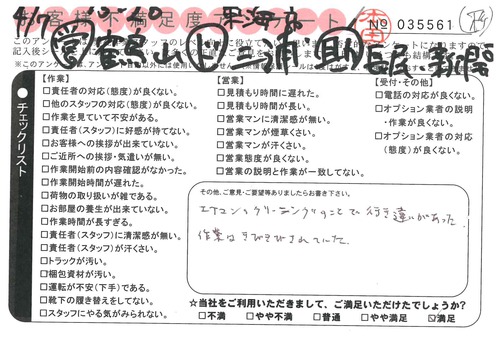 4/7
東海市
お客様不満足度アンケート
No 035561
三浦
長尻
【作業】
□責任者の対応(態度)が良くない。
□他のスタッフの対応(態度)が良くない。
□作業を見ていて不安がある。
□責任者(スタッフ)に好感が持てない。
□お客様への挨拶が出来ていない。
□ご近所への挨拶・気遣いが無い。
□作業開始前の内容確認がなかった。
□作業開始時間が遅れた。
□荷物の取り扱いが雑である。
□お部屋の養生が出来ていない。
□作業時間が長すぎる。
□責任者(スタッフ)に清潔感が無い。
□責任者(スタッフ)が汗くさい。
□トラックが汚い。
□梱包資材が汚い。
□運転が不安(下手)である。
□靴下の履き替えをしてない。
□スタッフにやる気がみられない。
チェックリスト
【営業】
□見積もり時間に遅れた。
□見積もり時間が長い。
□営業マンに清潔感が無い。
□営業マンが煙草くさい。
□営業マンが汗くさい。
□営業態度が良くない。
□営業の説明と作業が一致してない。
【受付・その他】
□電話の対応が良くない。
□オプション業者の説明
・作業が良くない。
□オプション業者の対応
(態度)が良くない。
その他、ご意見・ご要望等ありましたらお書き下さい。
エアコンクリーニングのことで行き違いがあった。
作業はきびきびされていた。
☆当社をご利用いただきまして、ご満足いただけたでしょうか?
□不満 □やや不満 □普通 □やや満足 ☑満足